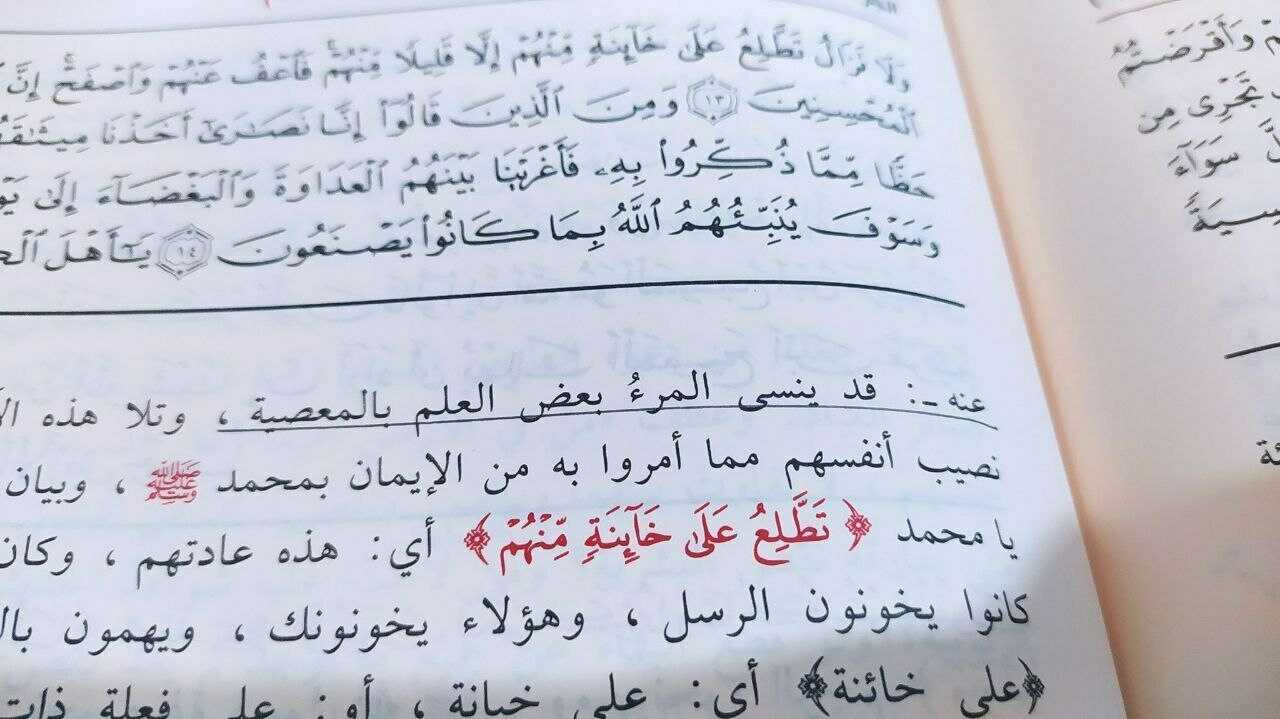 وَلَا تَزَالُ تَطَّلِعُ عَلَىٰ خَآئِنَةٍ مِّنْهُمْ إِلَّا قَلِيلًا مِّنْهُمْ فَاعْفُ عَنْهُمْ وَاصْفَحْ إِنَّ
الْمُحْسِنِينَ ١٣ وَمِنَ الَّذِينَ قَالُوا إِنَّا نَصَارَىٰ أَخَذْنَا
حَظًّا مِّمَّا ذُكِّرُوا بِهِ فَأَغْرَيْنَا بَيْنَهُمُ الْعَدَاوَةَ وَالْبَغْضَاءَ إِلَىٰ
وَسَوْفَ يُنَبِّئُهُمُ اللَّهُ بِمَا كَانُوا يَصْنَعُونَ ١٤ يَا أَهْلَ
عنه ـ: قد ينسى المرءُ بعض العلم بالمعصية ، وتلا هذه
نصيب أنفسهم مما أمروا به من الإيمان بمحمد ﷺ ، وبيان
يا محمد ﴿تَطَّلِعُ عَلَىٰ خَآئِنَةٍ مِّنْهُمْ﴾ أي: هذه عادتهم ، وكان
كانوا يخونون الرسل ، وهؤلاء يخونونك ، ويهمون
﴿على خائنة﴾ أي: على خيانة ، أو: على فعلة ذات
وَأَقْرَضْتُمُ
تَجْرِي مِن
سَوَآءَ